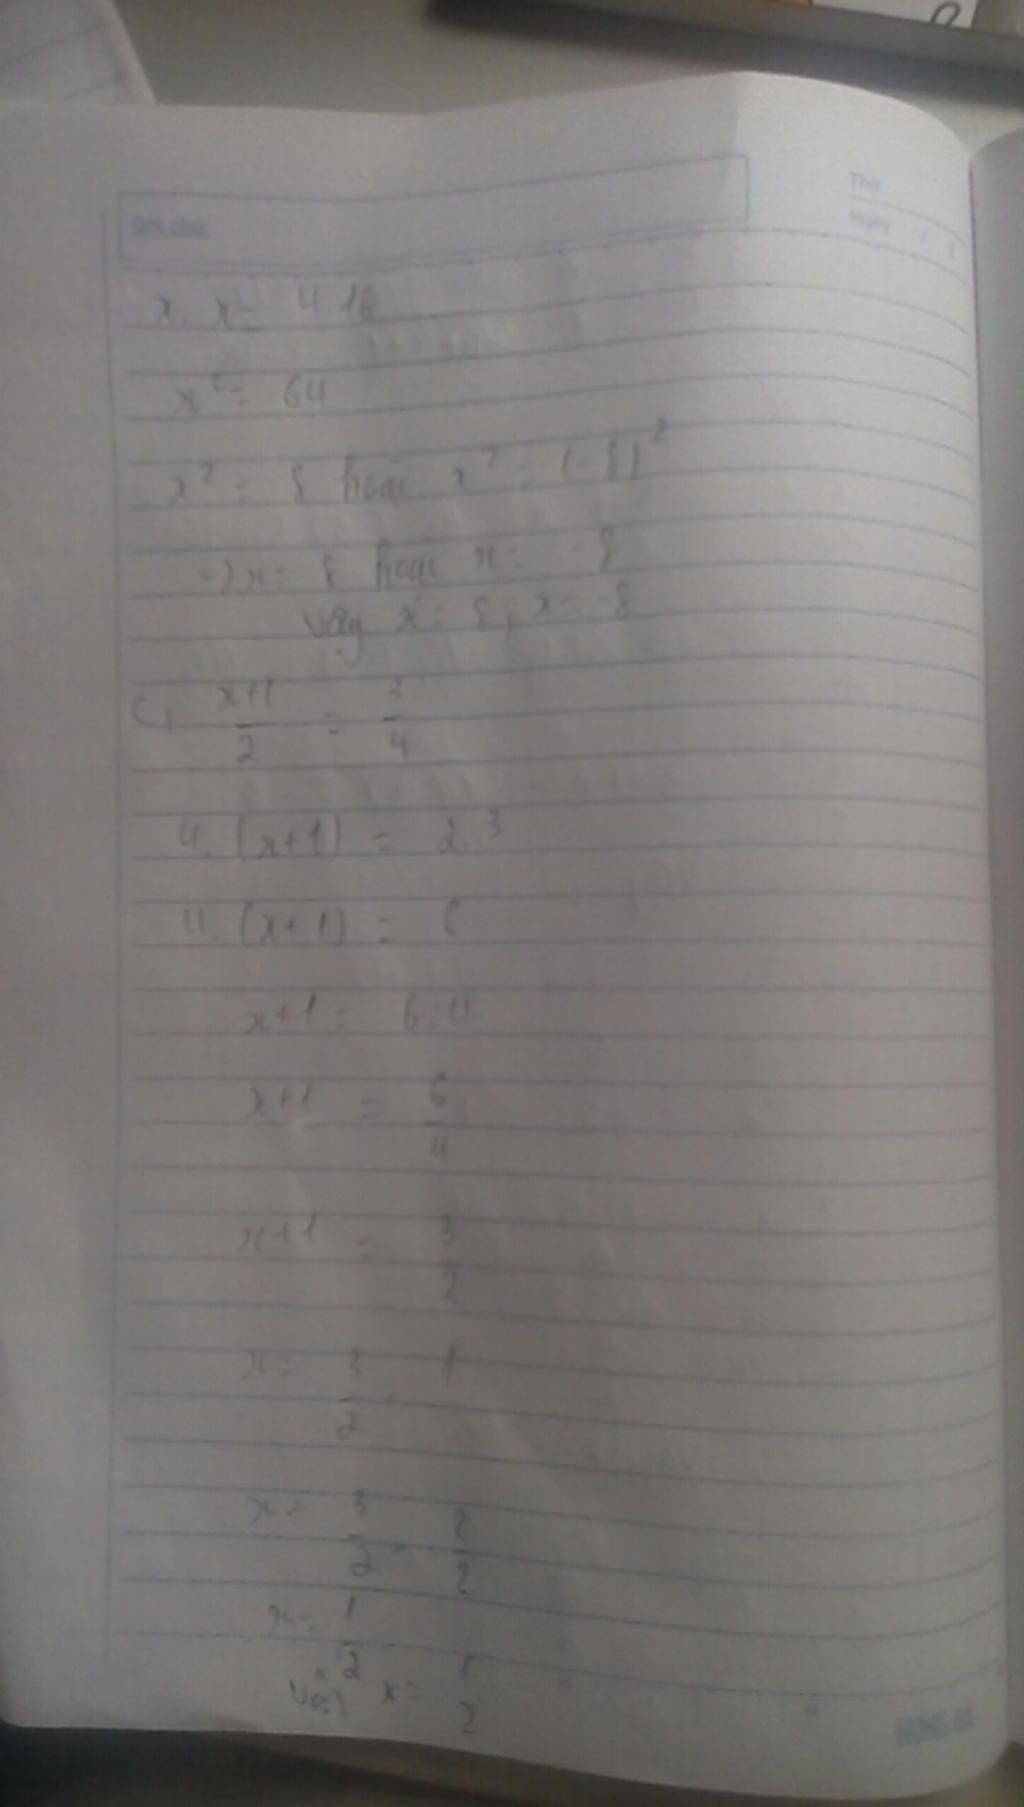 Ghi chú:
Thứ
Ngày / /
x. x = 4.16
x² = 64
x² = 8 hoặc x² = (-8)²
=> x = 8 hoặc x = -8
Vậy x = 8, x = -8
c, x+1/2 = 3/4
4. (x+1) = 2.3
4. (x+1) = 6
x+1 = 6:4
x+1 = 6/4
x+1 = 3/2
x = 3/2 - 1
x = 3/2 - 2/2
x = 1/2
Vậy x = 1/2
HỒNG HÀ